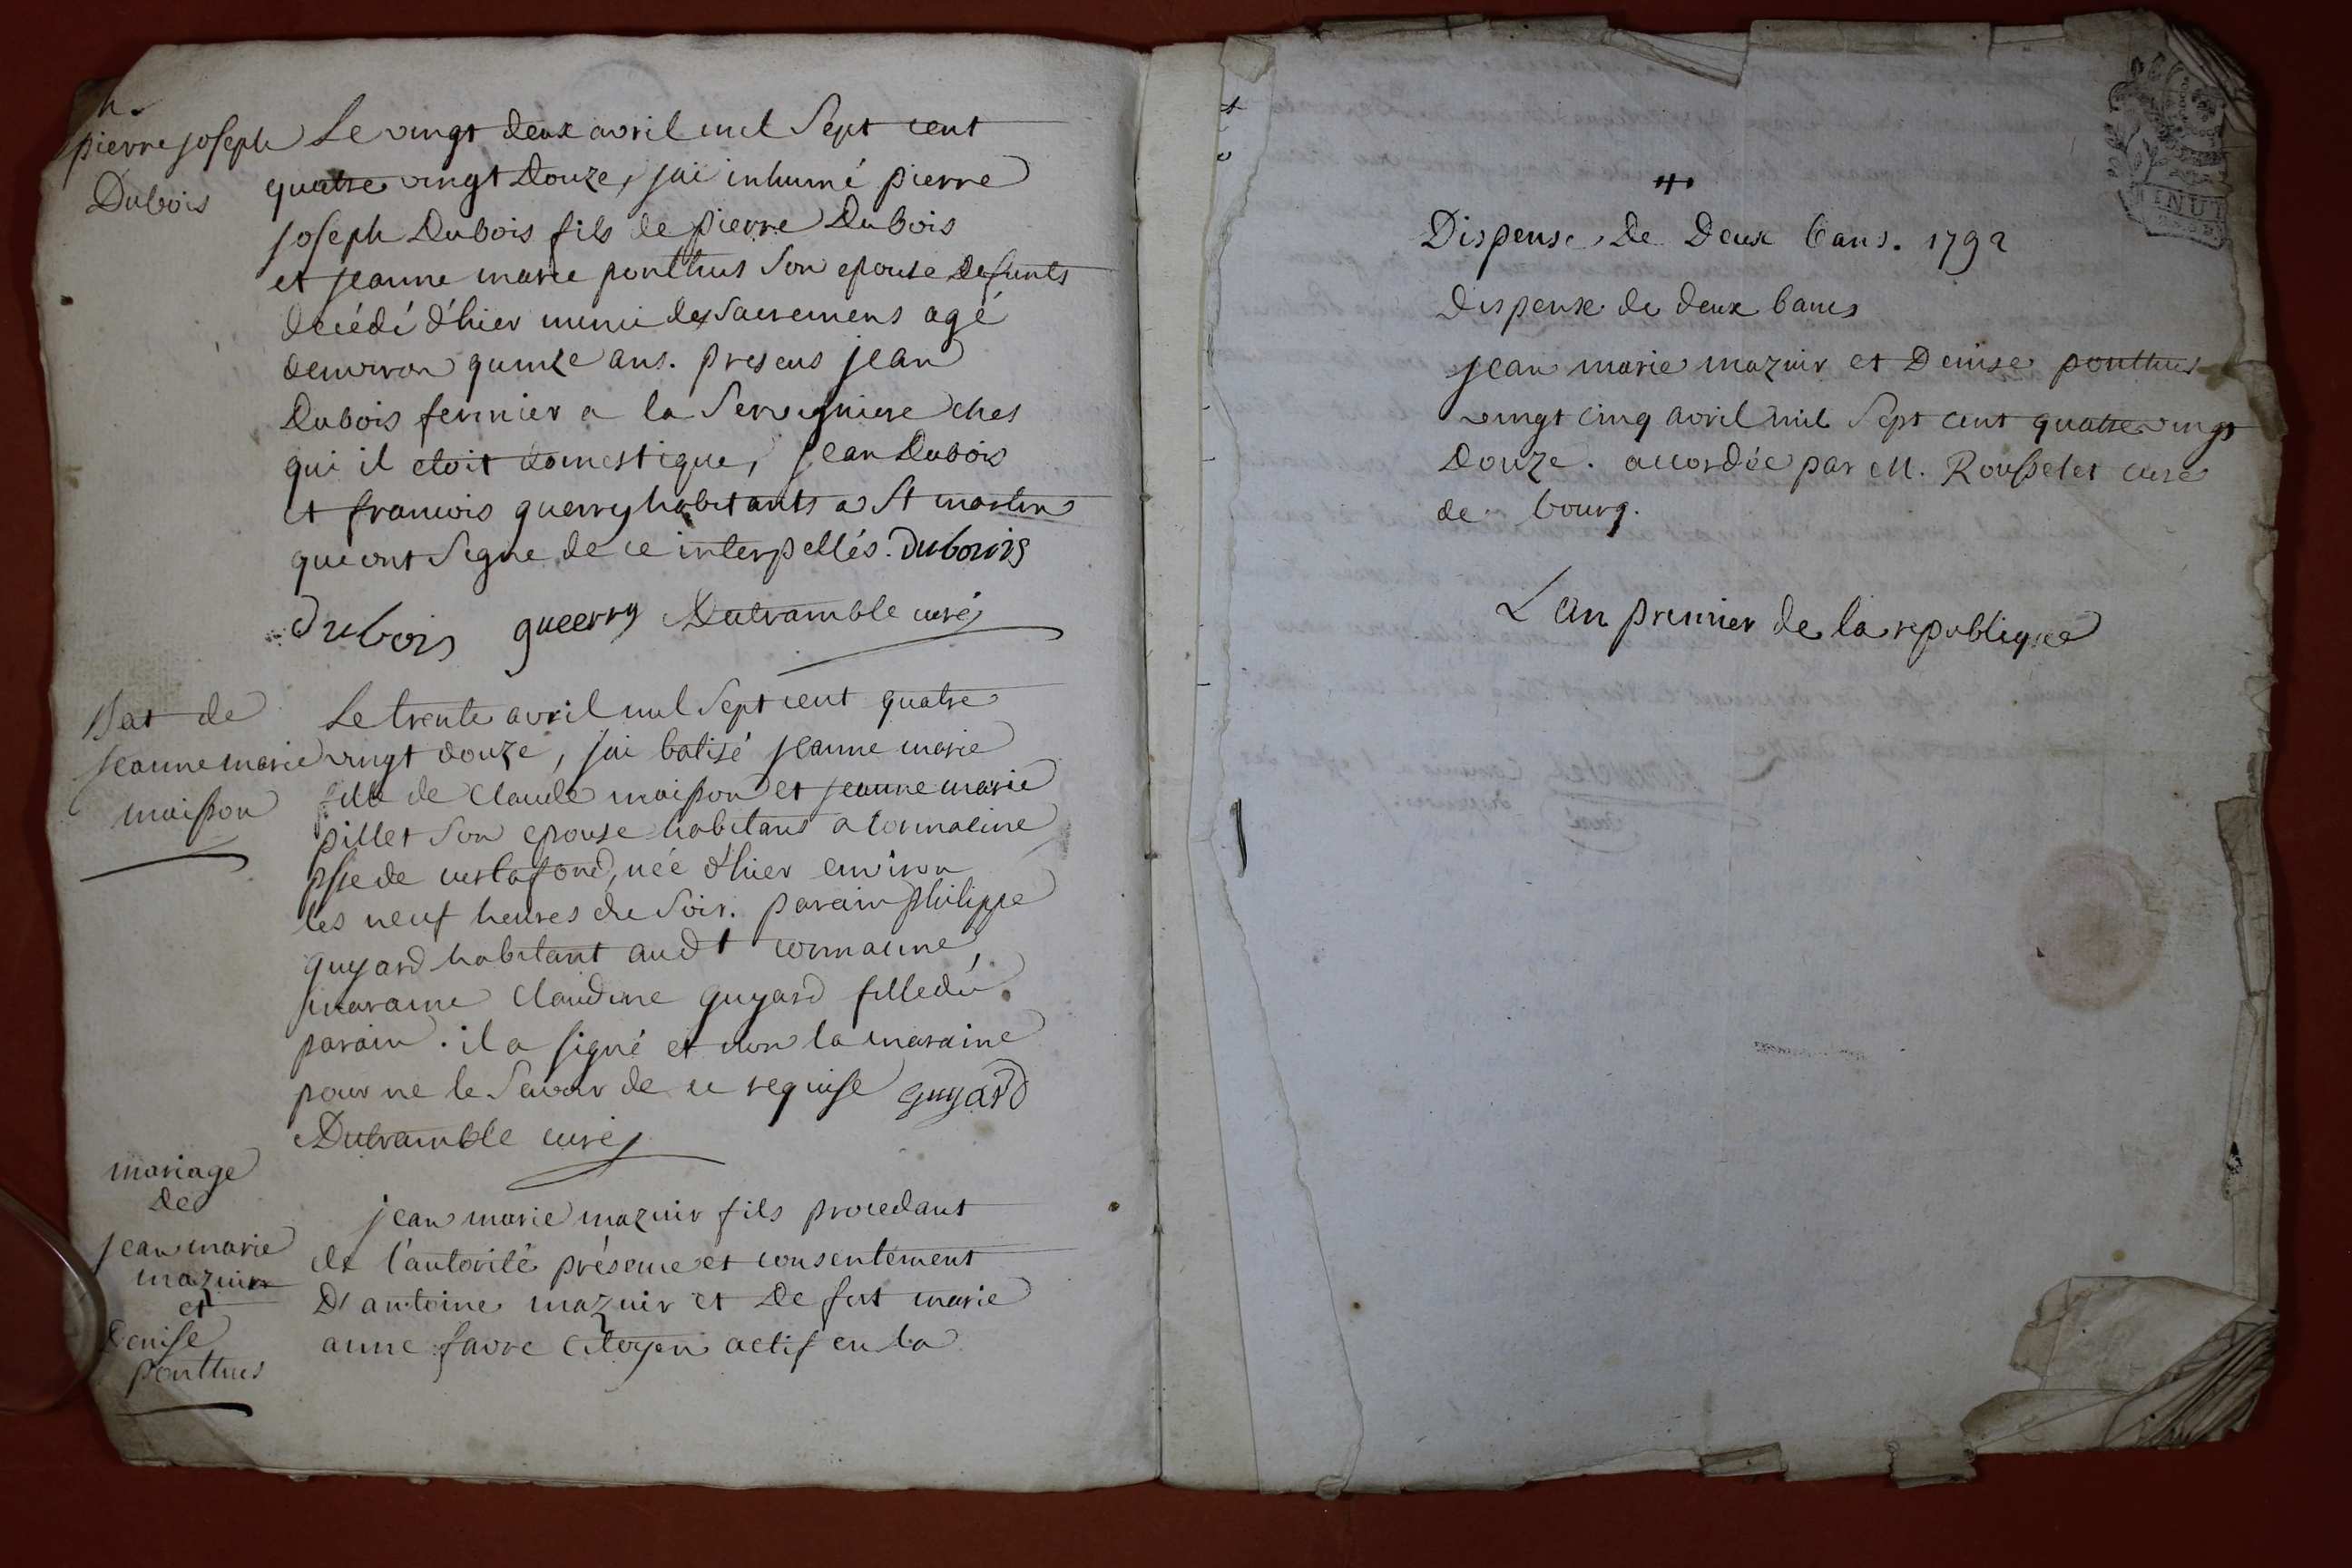 pierre joseph
Dubois
Le vingt deux avril mil Sept cent
quatre vingt Douze, jai inhumé pierre
joseph Dubois fils de pierre Dubois
et jeanne marie ponthus Son epouse Defunts
décédé d'hier muni des Sacremens agé
denviron quinze ans. presens jean
Dubois fermier a la Servigniere ches
qui il etoit domestique, jean Dubois
et francois guerry habitants a St martin
qui ont Signe de ce interpellés. Duboiis
Dubois gueerry Dutramble curé
Bat de
jeanne marie
maisson
Le trente avril mil Sept cent quatre
vingt douze, jai batisé jeanne marie
fille de Claude maisson et jeanne marie
pillet Son epouse habitans a tormacine
psse de curtafond, née d'hier environ
les neuf heures du Soir. parain philippe
guyard habitant audt
maraine Claudine guyard fille du
parain. il a signé et non la maraine
pour ne le Savoir de ce requise guyard
Dutramble curé
mariage
de
jean marie
mazuir
et
Denise
ponthus
jean marie mazuir fils procedant
de l'autorité présence et consentement
D'antoine mazuir et De fut marie
anne favre Citoyen actif en la
Dispense De Deux bans. 1792
Dispense de deux bans
jean marie mazuir et Denise ponthus
vingt cinq avril mil Sept cent quatre vingt
Douze. accordée par M. Rousselet curé
de bourg.
L'an premier de la republique
MINUT